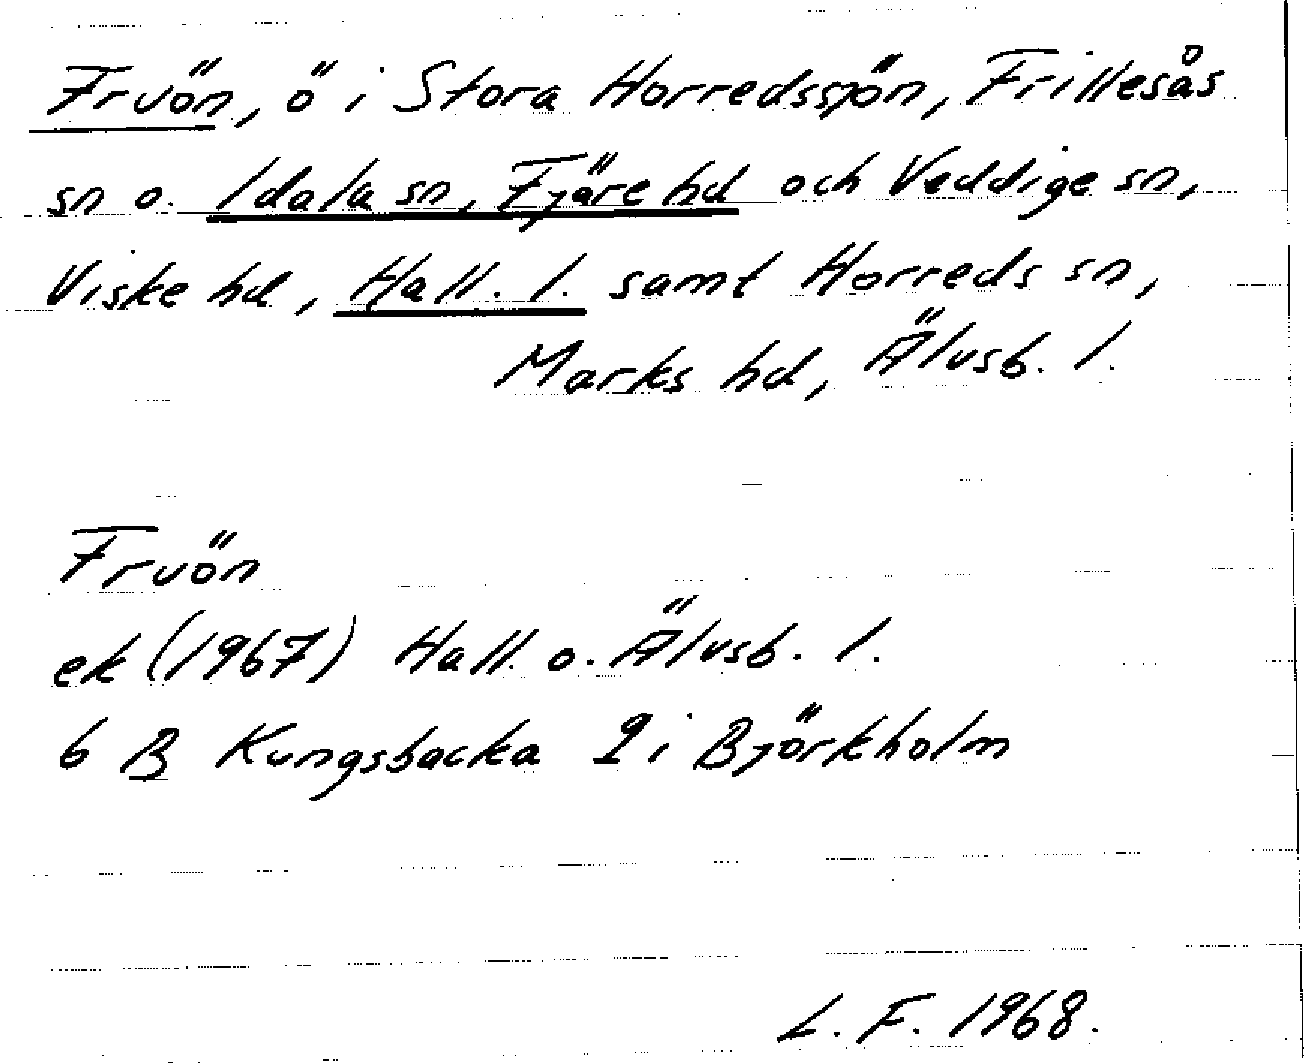 Fruön, ö i Stora Horredssjön, Frillesås
sn o. Idala sn, Fjäre hd och Veddige sn,
Viske hd, Hall. l. samt Horreds sn,
Marks hd, Älvsb. l.
Fruön
ek (1967) Hall. o. Älvsb. l.
6 B Kungsbacka 2 i Björkholm
L. F. 1968.